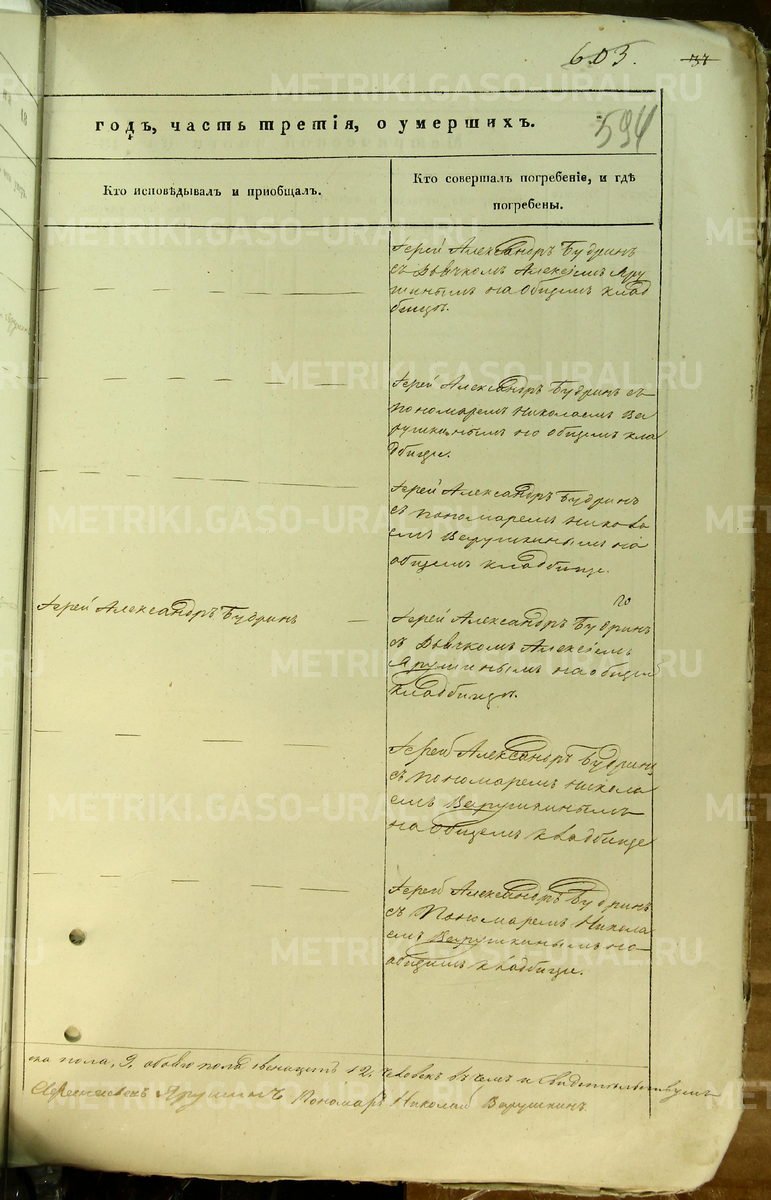 603.
594
годъ, часть третія, о умершихъ.
Кто исповѣдывалъ и пріобщалъ.
Кто совершалъ погребеніе, и гдѣ
погребены.
Іерей Александръ Будринъ
съ Дьячкомъ Алексіемъ Яру
шинымъ на общемъ клад
бищѣ.
Іерей Александръ Будринъ съ
пономаремъ Николаемъ Ва
рушкинымъ на общемъ кла
дбищѣ.
Іерей Александръ Будринъ
съ Пономаремъ Никола
емъ Варушкинымъ на
общемъ кладбище.
Іерей Александръ Будринъ
Іерей Александръ Будринъ
съ Дьячкомъ Алексіемъ
Ярушинымъ на общемъ
кладбищѣ.
Іерей Александръ Будринъ
съ Пономаремъ Никола
емъ Варушкинымъ
на общемъ кладбище
Іерей Александръ Будринъ
съ Пономаремъ Никола
емъ Варушкинымъ на
общемъ кладбище.
ска пола, 9, обоего пола двенадцать 12, человекъ въ чемъ и свидетельствуемъ
Ярушинъ Пономарь Николай Варушкинъ
METRIKI.GASO-URAL.RU